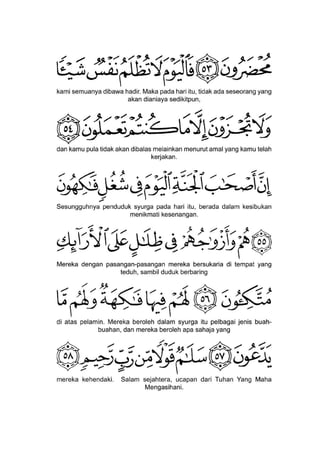 مُحْضَرُونَ ﴿٥٣﴾ فَٱلْيَوْمَ لَا تُظْلَمُ نَفْسٌ شَيْـًٔا
kami semuanya dibawa hadir. Maka pada hari itu, tidak ada seseorang yang
akan dianiaya sedikitpun,
وَلَا تُجْزَوْنَ إِلَّا مَا كُنتُمْ تَعْمَلُونَ ﴿٥٤﴾
dan kamu pula tidak akan dibalas melainkan menurut amal yang kamu telah
kerjakan.
إِنَّ أَصْحَـٰبَ ٱلْجَنَّةِ ٱلْيَوْمَ فِى شُغُلٍ فَـٰكِهُونَ
Sesungguhnya penduduk syurga pada hari itu, berada dalam kesibukan
menikmati kesenangan.
﴿٥٥﴾ هُمْ وَأَزْوَٰجُهُمْ فِى ظِلَـٰلٍ عَلَى ٱلْأَرَآئِكِ
Mereka dengan pasangan-pasangan mereka bersukaria di tempat yang
teduh, sambil duduk berbaring
مُتَّكِـُٔونَ ﴿٥٦﴾ لَهُمْ فِيهَا فَـٰكِهَةٌ وَلَهُم مَّا
di atas pelamin. Mereka beroleh dalam syurga itu pelbagai jenis buah-
buahan, dan mereka beroleh apa sahaja yang
يَدَّعُونَ ﴿٥٧﴾ سَلَـٰمٌ قَوْلًا مِّن رَّبٍّ رَّحِيمٍ ﴿٥٨﴾
mereka kehendaki. Salam sejahtera, ucapan dari Tuhan Yang Maha
Mengasihani.